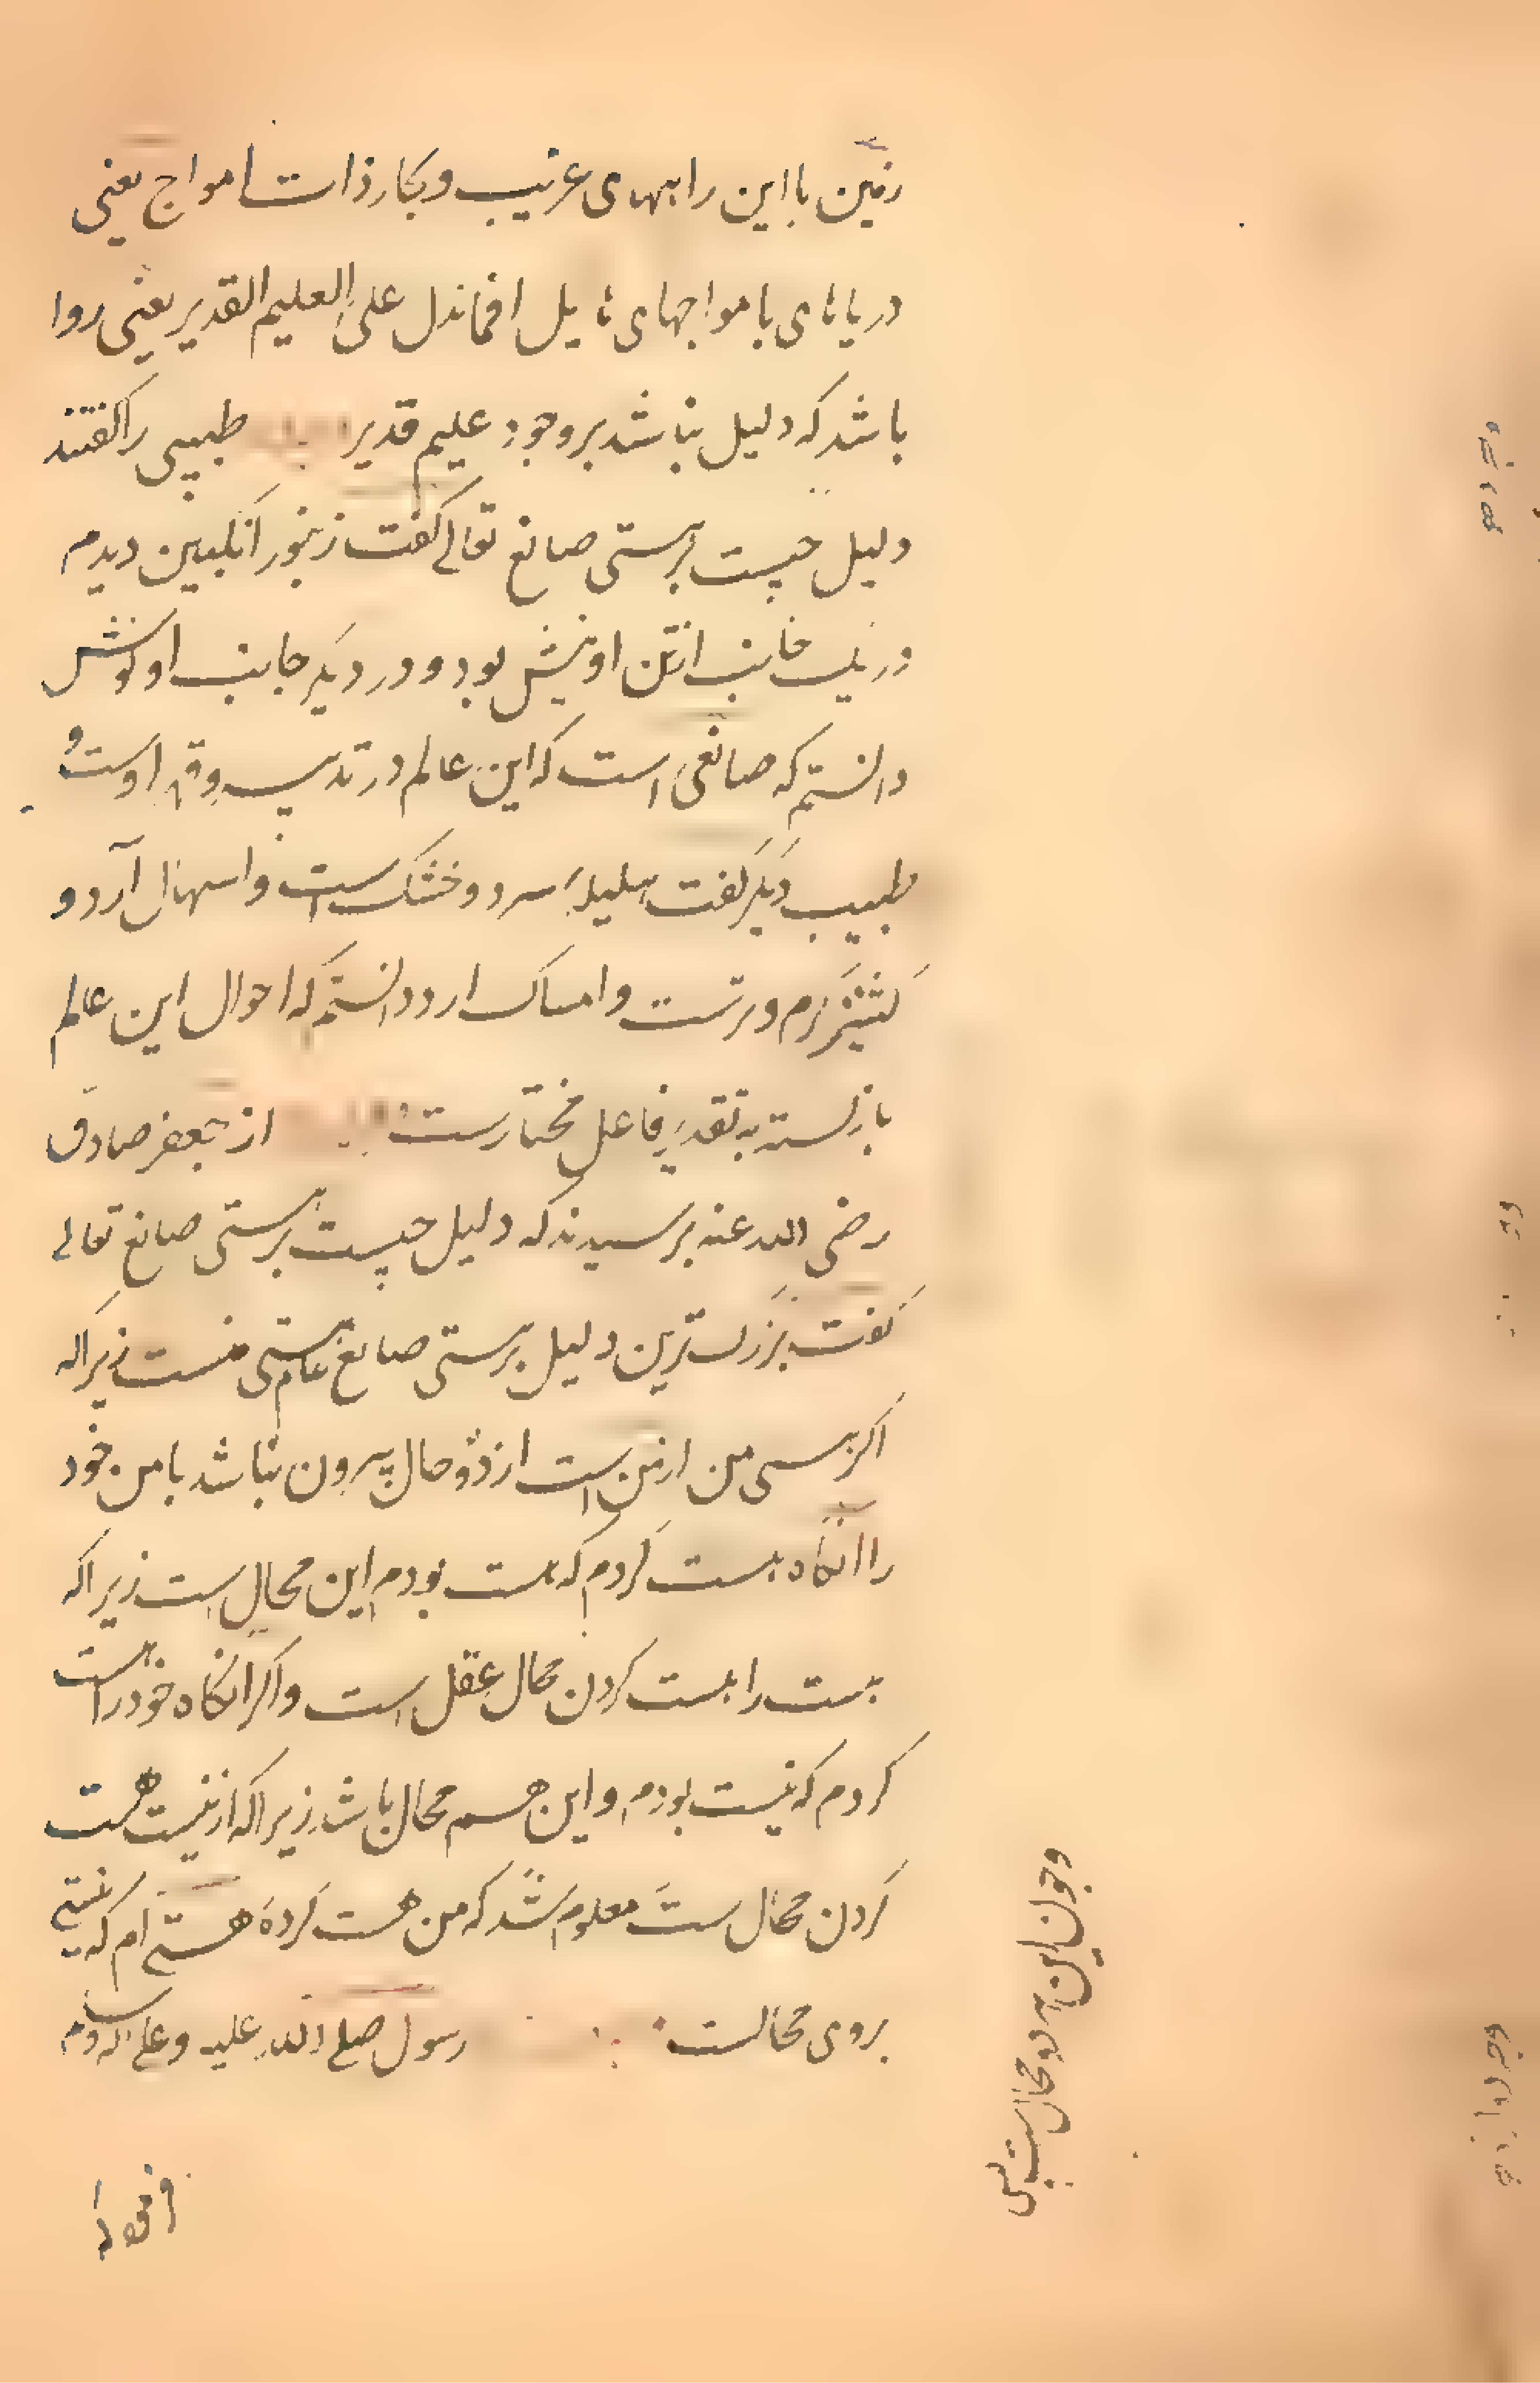 زمین با این راههای غریب و بحار ذات امواج یعنی
دریاهای با مواجهای هایل افما تدل علی العلیم القدیر یعنی روا
باشد که دلیل نباشد بر وجود علیم قدیر طبیبی را گفتند
دلیل چیست بر هستی صانع تعالی گفت زنبور انگبین دیدم
در یک جانب از تن او نیش بود و در دیگر جانب او نوش
دانستم که صانعی است که این عالم در تدبیر و قهر اوست و
طبیب دیگر گفت هلیله سرد و خشک است و اسهال آرد و
کشنیز نرم و ترست و امساک ارد دانستم که احوال این عالم
باز بسته به تقدیر فاعل مختارست از جعفر صادق
رضی الله عنه پرسیدند که دلیل چیست بر هستی صانع تعالی
گفت بزرگ ترین دلیل بر هستی صانع عالم هستی منست زیرا که
اگر هستی من از من است از دو حال بیرون نباشد یا من خود
را آنگاه هست کردم که هست بودم این محال است زیرا که
هست را هست کردن محال عقل است و اگر آنگاه خود را هست
کردم که نیست بودم و این هم محال باشد زیرا که از نیست هست
کردن محال ست معلوم شد که من هست کرده هستی ام که نیستی
بروی محالست رسول صلی الله علیه و علی اله و سلم
وچون این هر دو محال است پس